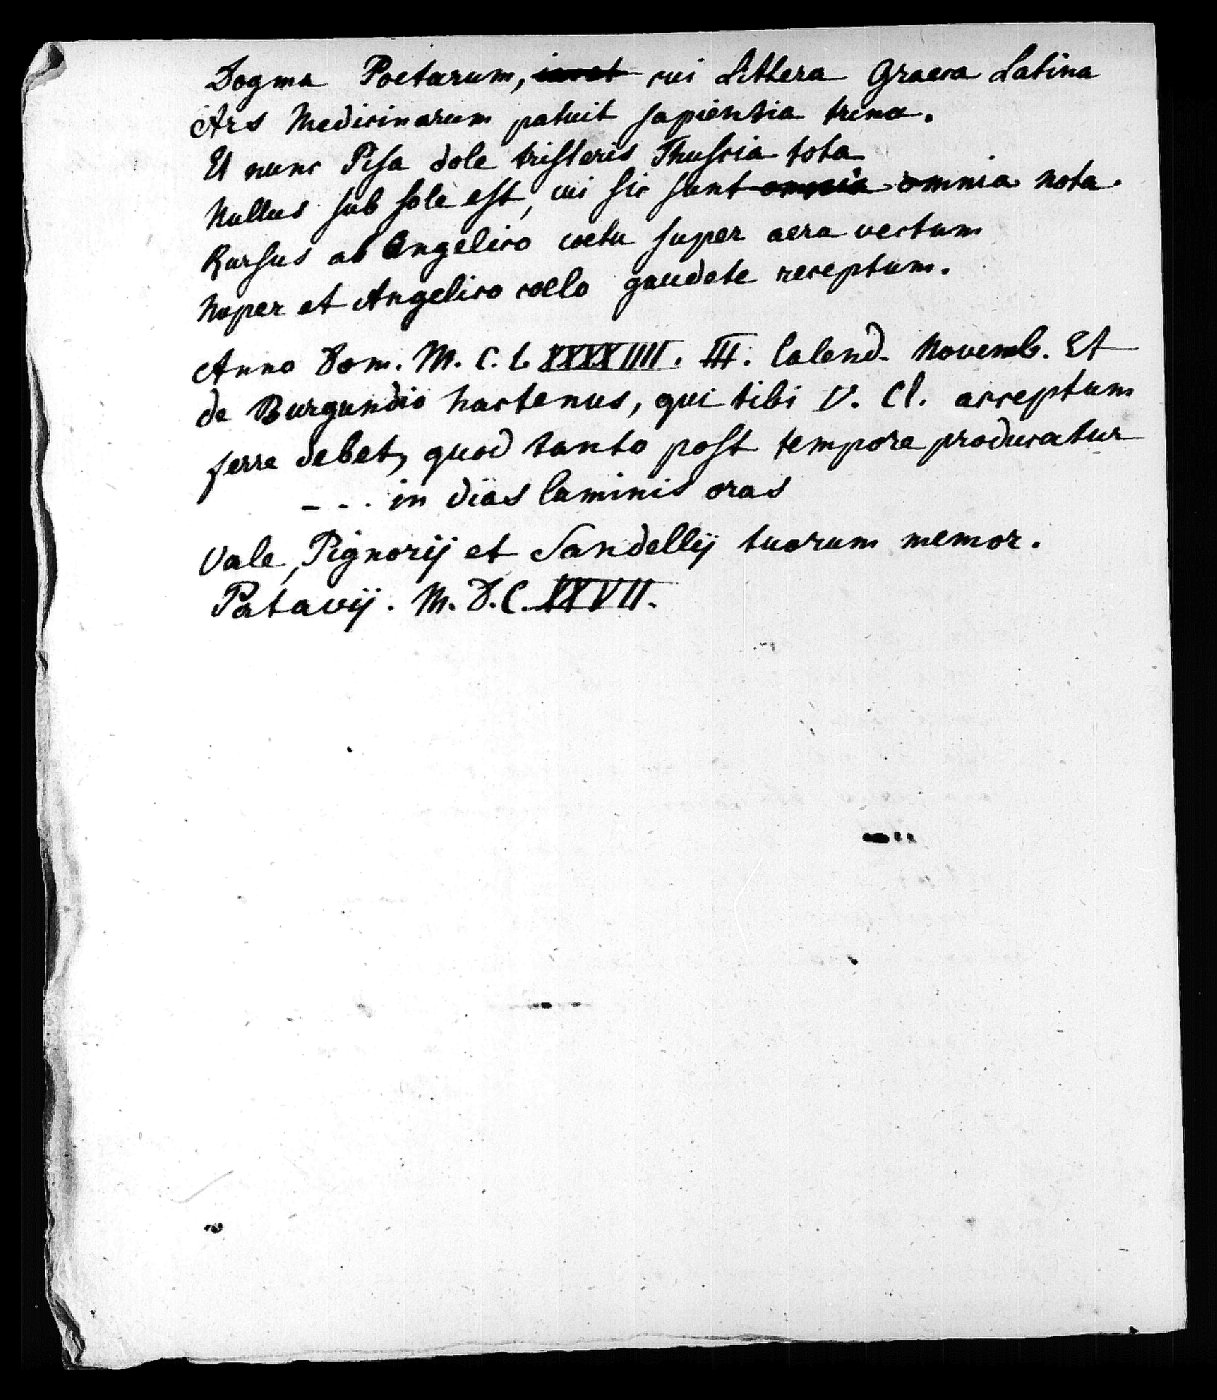 Dogma Poetarum, iacet cui Littera Graeca Latina
Ars Medicinarum patuit sapientia trina.
Et nunc Pisa dole tristeris Thuscia tota
Nullus sub sole est, cui sic sunt omnia omnia nota.
Rursus ab Angelico coetu super aera vectum
Nuper et Angelico coelo gaudete receptum.
Anno Dom. M. C. L XXXXIIII. III. Calend. Novemb. Et
de Burgundio hactenus, qui tibi V. Cl. acceptum
ferre debet, quod tanto post tempore producatur
- - . in dias luminis oras
Vale, Pignorij et Sandellij tuorum memor.
Patavij. M. D. C. XXVII.